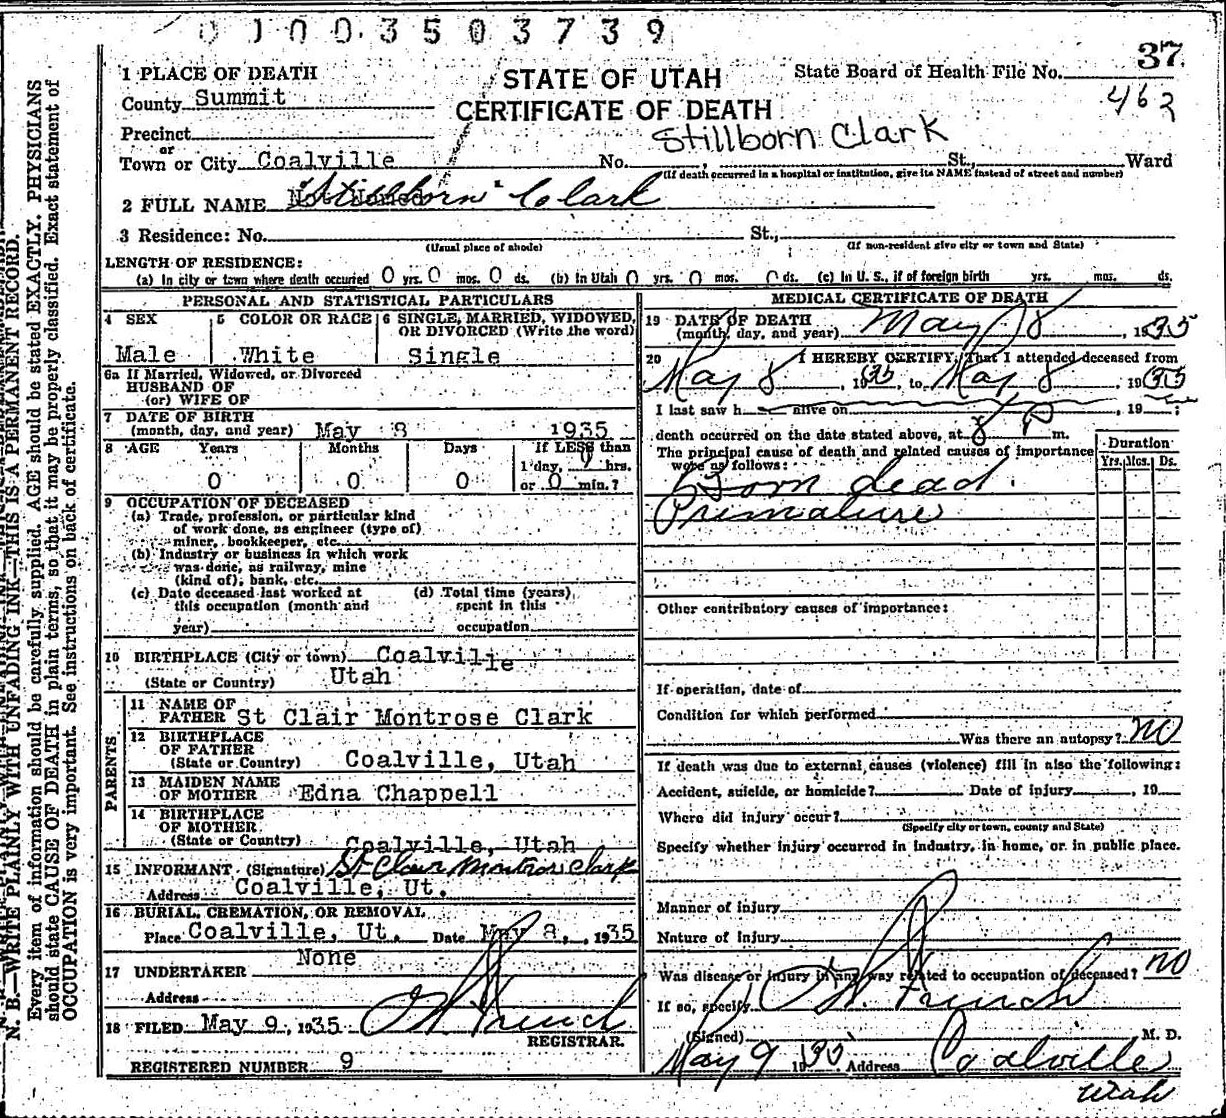 0 1 0 0 3 5 0 3 7 3 9
37.
1 PLACE OF DEATH
STATE OF UTAH
State Board of Health File No.
County Summit
CERTIFICATE OF DEATH
462
Precinct
Stillborn Clark
or
Town or City Coalville No. , St., Ward
(If death occurred in a hospital or institution, give its NAME instead of street and number)
2 FULL NAME "Stillborn" Clark
3 Residence: No. St.,
(Usual place of abode) (If non-resident give city or town and State)
LENGTH OF RESIDENCE:
(a) In city or town where death occurred 0 yrs. 0 mos. 0 ds. (b) In Utah 0 yrs. 0 mos. 0 ds. (c) In U. S., if of foreign birth yrs. mos. ds.
PERSONAL AND STATISTICAL PARTICULARS
4 SEX 5 COLOR OR RACE 6 SINGLE, MARRIED, WIDOWED, OR DIVORCED (Write the word)
Male White Single
6a If Married, Widowed, or Divorced
HUSBAND OF
(or) WIFE OF
7 DATE OF BIRTH
(month, day, and year) May 8 1935
8 AGE Years Months Days If LESS than
1 day, 0 hrs.
0 0 0 or 0 min.?
9 OCCUPATION OF DECEASED
(a) Trade, profession, or particular kind
of work done, as engineer (type of)
miner, bookkeeper, etc.
(b) Industry or business in which work
was done, as railway, mine
(kind of), bank, etc.
(c) Date deceased last worked at (d) Total time (years)
this occupation (month and spent in this
year) occupation
10 BIRTHPLACE (City or town) Coalville
(State or Country) Utah
PARENTS
11 NAME OF
FATHER St Clair Montrose Clark
12 BIRTHPLACE
OF FATHER
(State or Country) Coalville, Utah
13 MAIDEN NAME
OF MOTHER Edna Chappell
14 BIRTHPLACE
OF MOTHER
(State or Country) Coalville, Utah
15 INFORMANT (Signature) St Clair Montros Clark
Address Coalville, Ut.
16 BURIAL, CREMATION, OR REMOVAL
Place Coalville, Ut. Date May 8, 1935
17 UNDERTAKER None
Address
18 FILED May 9, 1935 French
REGISTRAR.
REGISTERED NUMBER 9
MEDICAL CERTIFICATE OF DEATH
19 DATE OF DEATH
(month, day, and year) May 8, 1935
20 I HEREBY CERTIFY, That I attended deceased from
May 8, 1935, to May 8, 1935
I last saw h alive on , 19 ;
death occurred on the date stated above, at 8 P m.
The principal cause of death and related causes of importance
were as follows:
Duration
Yrs. Mos. Ds.
Born dead.
Premature
Other contributory causes of importance:
If operation, date of
Condition for which performed
Was there an autopsy? no
If death was due to external causes (violence) fill in also the following:
Accident, suicide, or homicide? Date of injury , 19
Where did injury occur?
(Specify city or town, county and State)
Specify whether injury occurred in industry, in home, or in public place.
Manner of injury
Nature of injury
Was disease or injury in any way related to occupation of deceased? no
If so, specify
(Signed) French M. D.
May 9 1935 Address Coalville
Utah
N. B.—WRITE PLAINLY WITH UNFADING INK—THIS IS A PERMANENT RECORD.
Every item of information should be carefully supplied. AGE should be stated EXACTLY. PHYSICIANS
should state CAUSE OF DEATH in plain terms, so that it may be properly classified. Exact statement of
OCCUPATION is very important. See instructions on back of certificate.